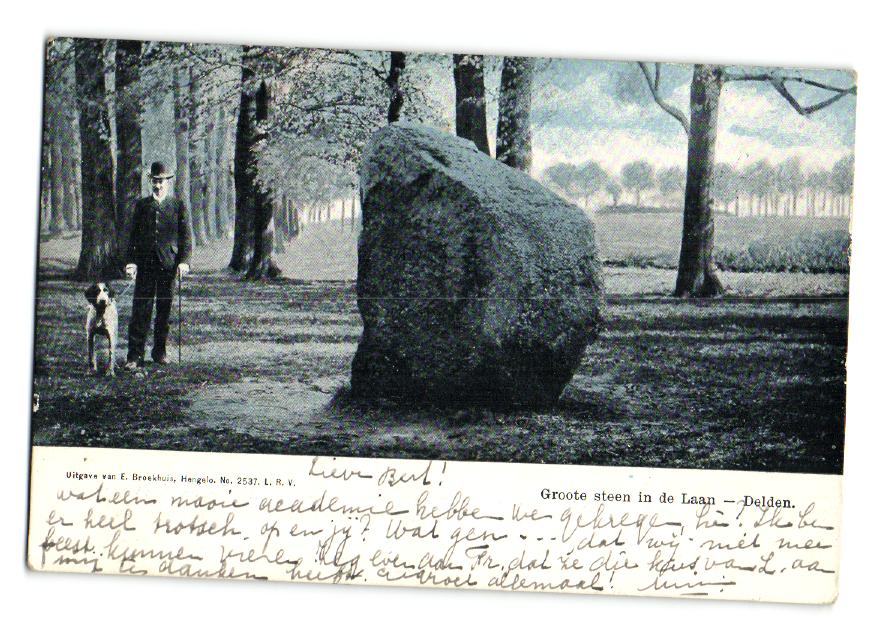 Lieve Bert!
Uitgave van E. Broekhuis, Hengelo. No. 2537. L. R. V.
Groote steen in de Laan — Delden.
wat een mooie academie hebben we gekregen, hè? Ik ben
er heel trotsch op en jij? Wat gen ... dat wij niet mee
feest kunnen vieren. Zeg even aan Fr. dat ze die kous van L. aan
mij te danken heeft. gegroet allemaal!